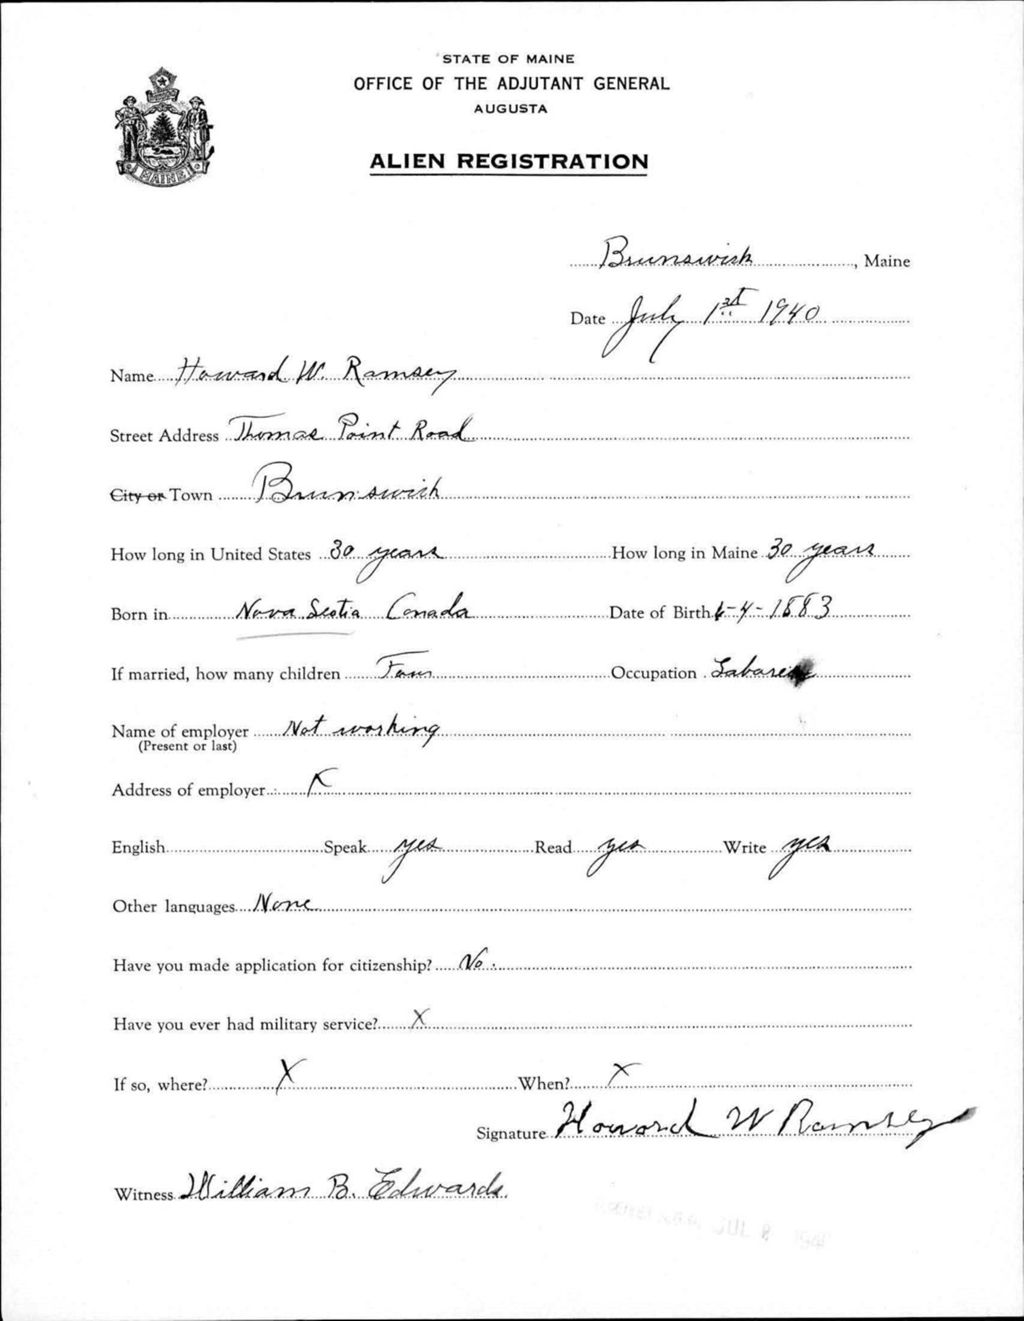 STATE OF MAINE
OFFICE OF THE ADJUTANT GENERAL
AUGUSTA
MAINE
ALIEN REGISTRATION
Brunswick, Maine
Date July 1st 1940
Name Howard W. Ramsey
Street Address Thomas Point Road
City or Town Brunswick
How long in United States 30 years How long in Maine 30 years
Born in Nova Scotia Canada Date of Birth 6-4-1883
If married, how many children Four Occupation Laborer
Name of employer Not working
(Present or last)
Address of employer X
English Speak yes Read yes Write yes
Other languages None
Have you made application for citizenship? No.
Have you ever had military service? X
If so, where? X When? X
Signature Howard W Ramsey
Witness William B. Edwards.
JUL 8